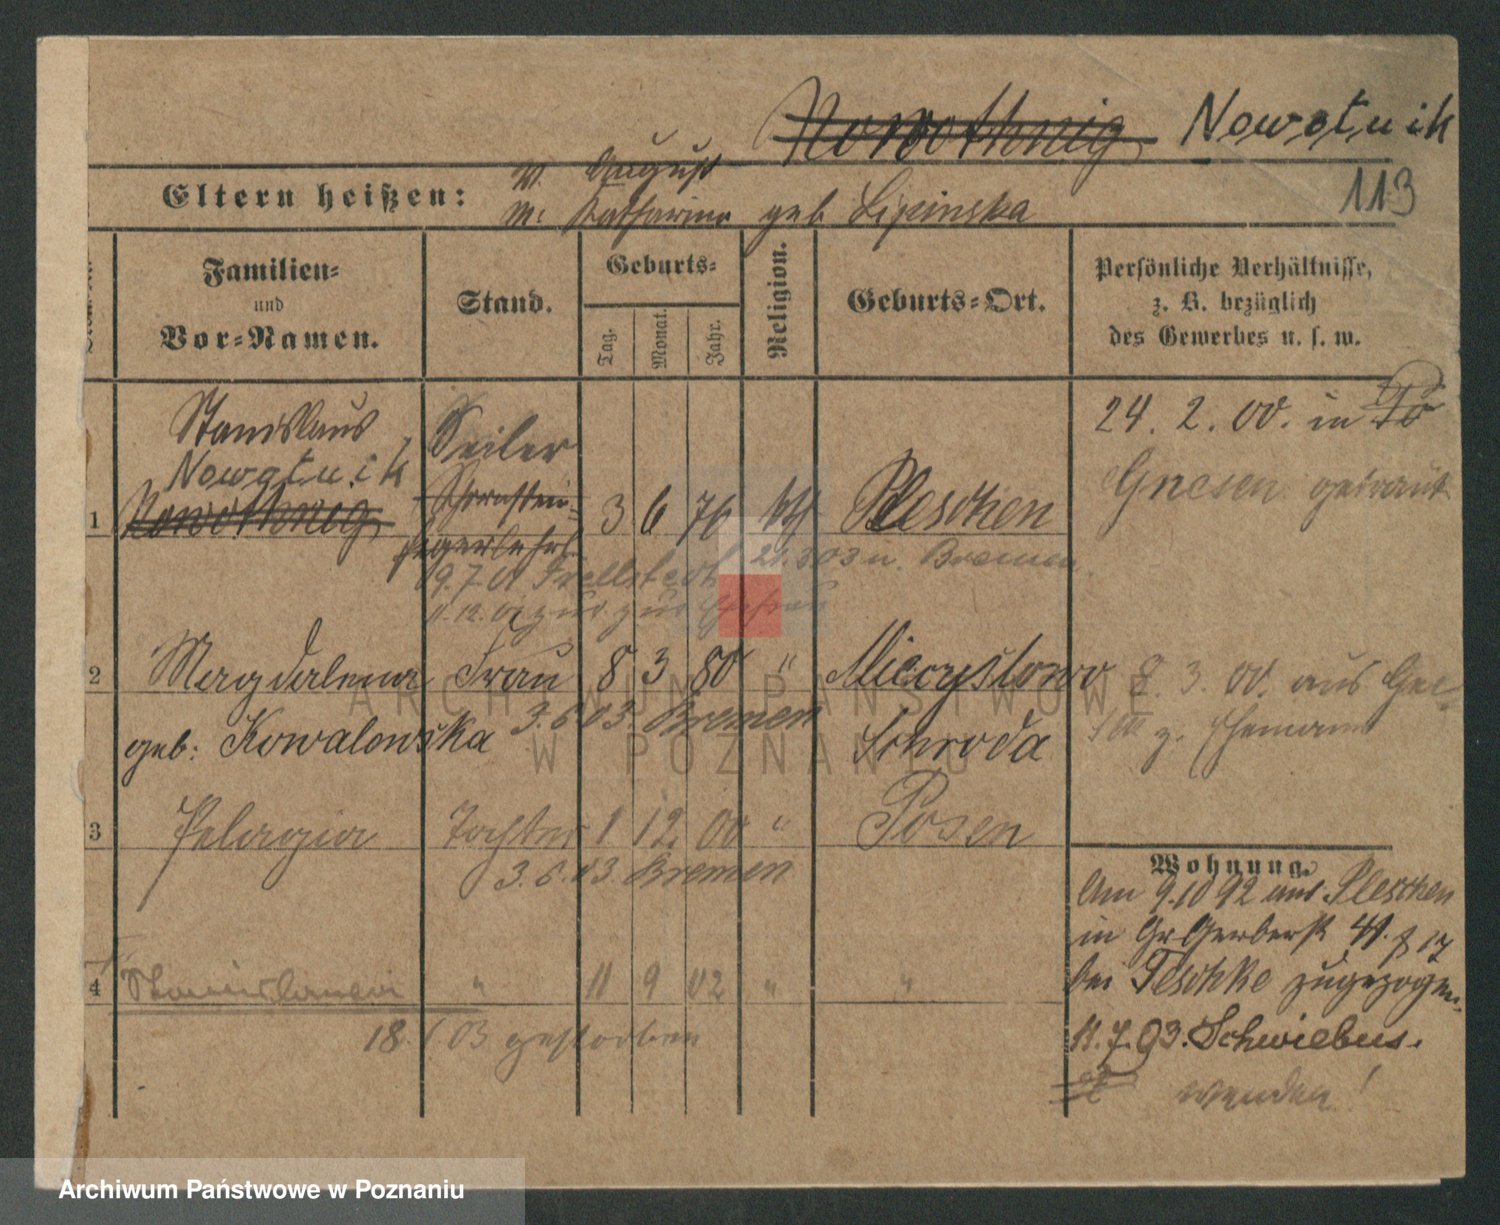 Nowothnig Nowatnik
113
Eltern heißen:
V. August
M: Katharina geb Lipinska
Familien- und Vor-Namen.
Stand.
Geburts-
Tag. Monat. Jahr.
Religion.
Geburts-Ort.
Persönliche Verhältnisse, z. B. bezüglich des Gewerbes u. s. w.
Stanislaus Seiler 24. 2. 00. in
Nowatnik Gnesen getraut
1 Nowothnig 3 6 76 kth Pleschen
19.7.01 Frellstedt 21.3.03 n. Bremen
11.12.01 zur
2 Magdalena Frau 8 3 80 " Mieczystowo 8. 3. 00. aus
geb: Kowalowska 3.6.03. Bremen Schroda z. Ehemann
3 Pelagia Tochter 1 12 00 " Posen
3.6.03. Bremen
Wohnung.
Am 9.10 92 aus Pleschen
in Gr Gerberst 41.
bei Teschke zugezogen.
11.7.93. Schwiebus.
wenden!
4 Stanislawa " 11 9 02 " "
18. 03 gestorben
ARCHIWUM PAŃSTWOWE
W POZNANIU
Archiwum Państwowe w Poznaniu